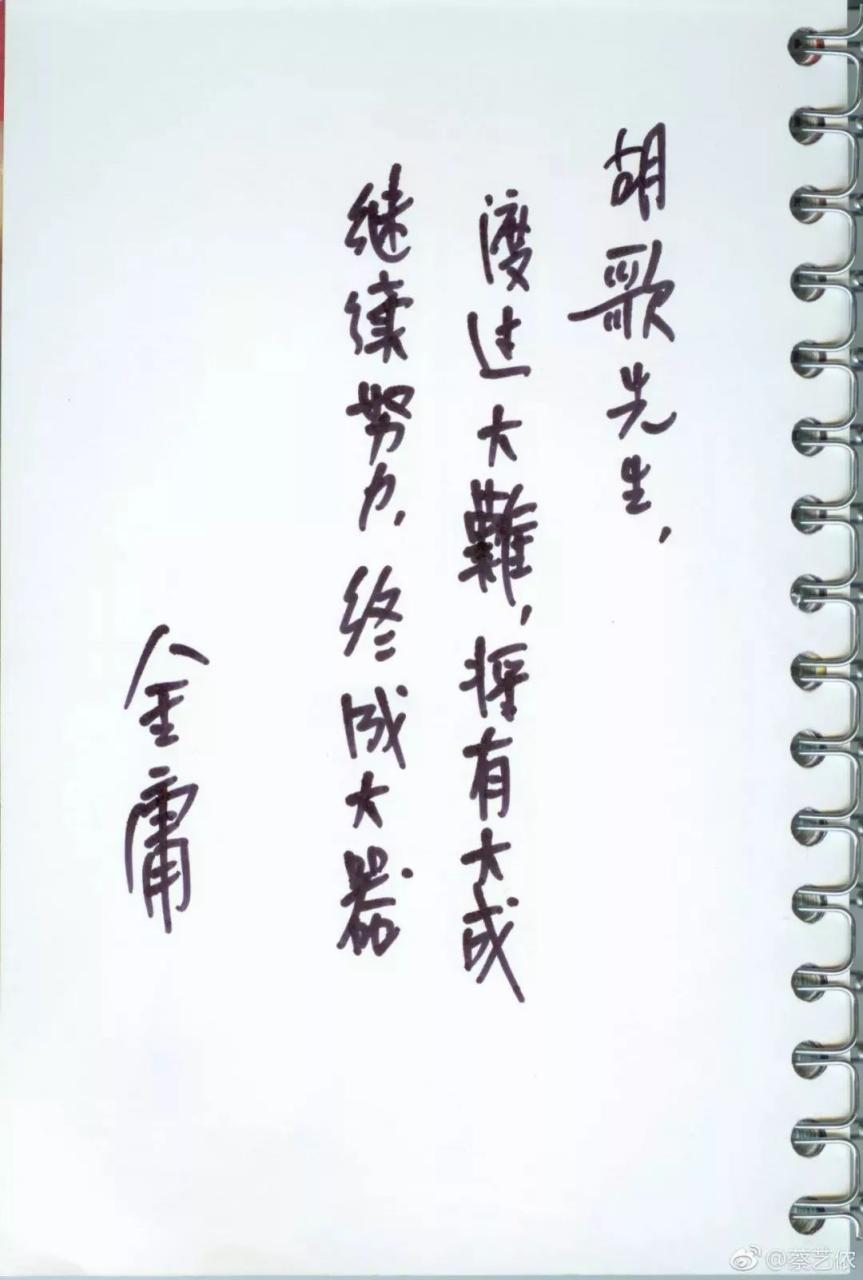 胡歌先生，
渡过大難，将有大成
继续努力，终成大器
金庸
@蔡艺侬